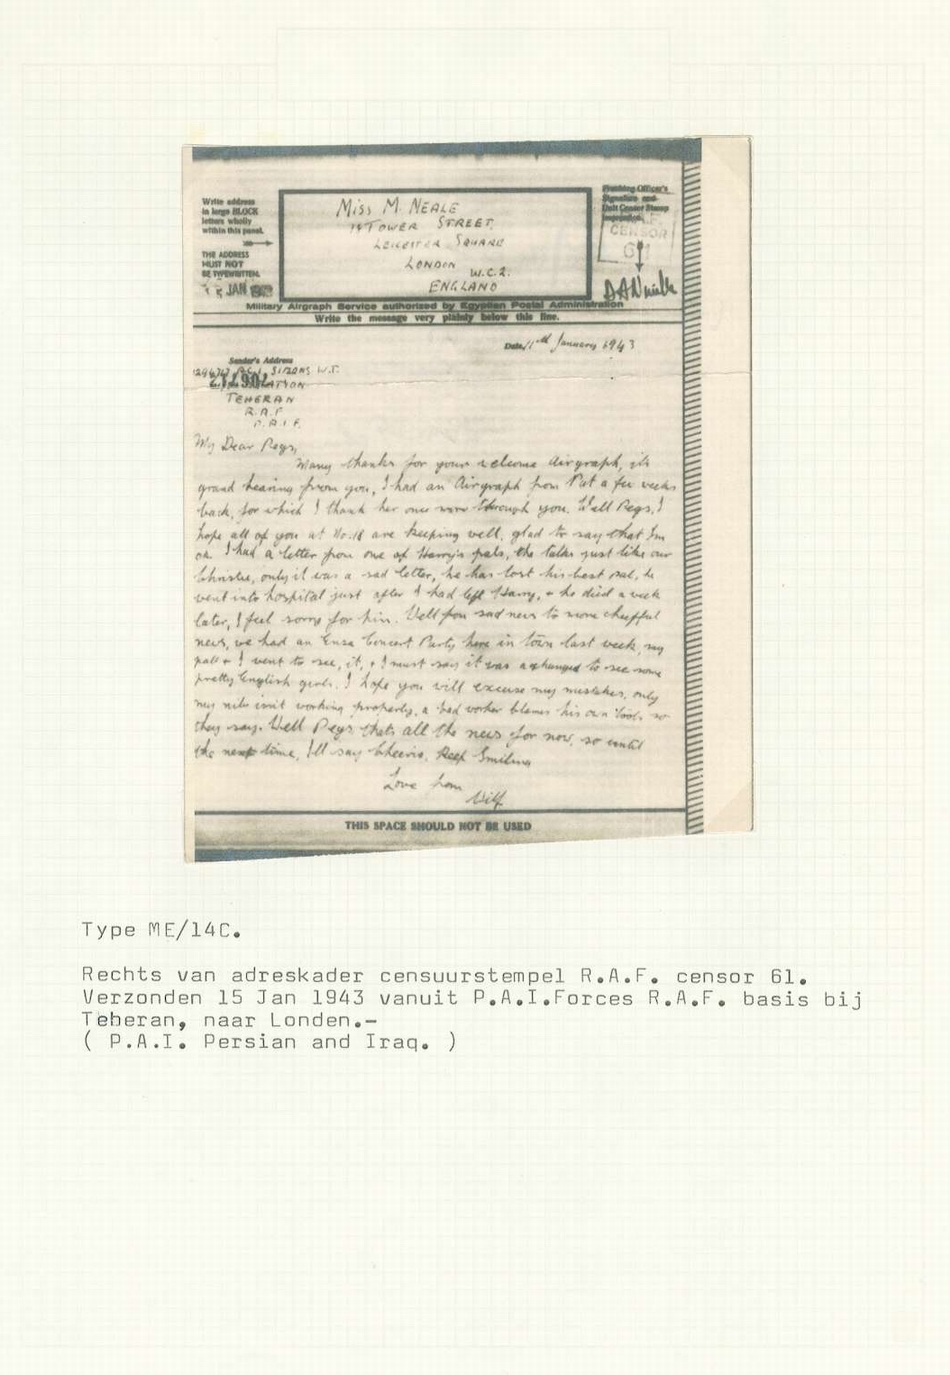 Write address
in large BLOCK
letters wholly
within this panel.
THE ADDRESS
MUST NOT
BE TYPEWRITTEN.
15 JAN
Miss M. NEALE
TOWER STREET,
LEICESTER SQUARE
LONDON
W.C.2.
ENGLAND
Officer's
Signature and
Unit Censor Stamp
CENSOR
61
Military Airgraph Service authorized by Egyptian Postal Administration
Write the message very plainly below this line.
Date 11th January 1943
Sender's Address
W.T.
TEHERAN
R.A.F
P.A.I.F.
My Dear Pegs,
Many thanks for your welcome Airgraph, its
grand hearing from you, I had an Airgraph from Pat a few weeks
back, for which I thank her once more through you. Well Pegs, I
hope all of you at No. 18 are keeping well, glad to say that I'm
ok. I had a letter from one of Harry's pals, the talks just like our
Christie, only it was a sad letter, he has lost his best pal, he
went into hospital just after I had left Harry, + he died a week
later, I feel sorry for him. Well from sad news to more cheerful
news, we had an Ensa Concert Party here in town last week, my
pals + I went to see, it, + I must say it was a change to see some
pretty English girls. I hope you will excuse my mistakes, only
my nib isn't working properly, a bad worker blames his own tools, so
they say. Well Pegs thats all the news for now, so until
the next time, I'll say Cheerio, Keep Smiling
Love from
Wilf.
THIS SPACE SHOULD NOT BE USED
Type ME/14C.
Rechts van adreskader censuurstempel R.A.F. censor 61.
Verzonden 15 Jan 1943 vanuit P.A.I.Forces R.A.F. basis bij
Teheran, naar Londen.-
( P.A.I. Persian and Iraq. )